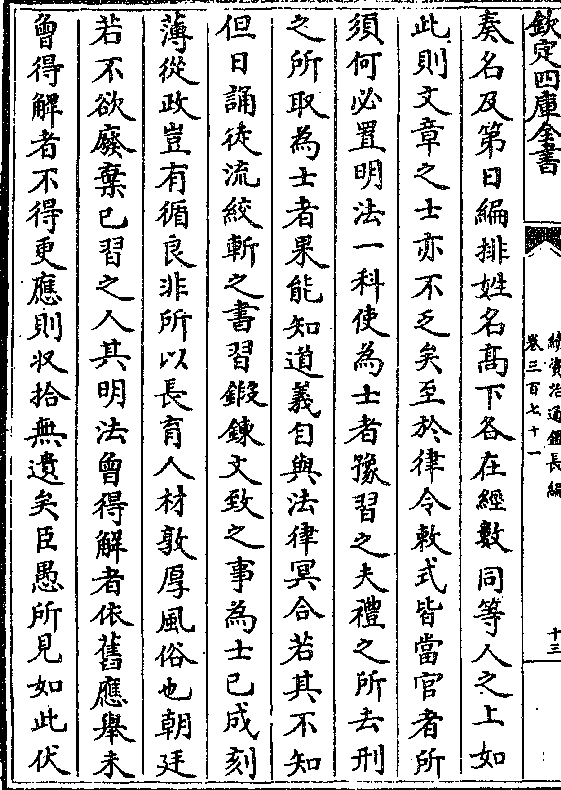 欽定四庫全書
續資治通鑑長編
卷三百七十一
十三
奏名及第日編排姓名髙下各在經數同等人之上如
此則文章之士亦不乏矣至於律令敕式皆當官者所
須何必置明法一科使為士者豫習之夫禮之所去刑
之所取為士者果能知道義自與法律冥合若其不知
但日誦徒流絞斬之書習鍛鍊文致之事為士已成刻
薄從政豈有循良非所以長育人材敦厚風俗也朝廷
若不欲廢棄已習之人其明法曾得解者依舊應舉未
曾得解者不得更應則収拾無遺矣臣愚所見如此伏